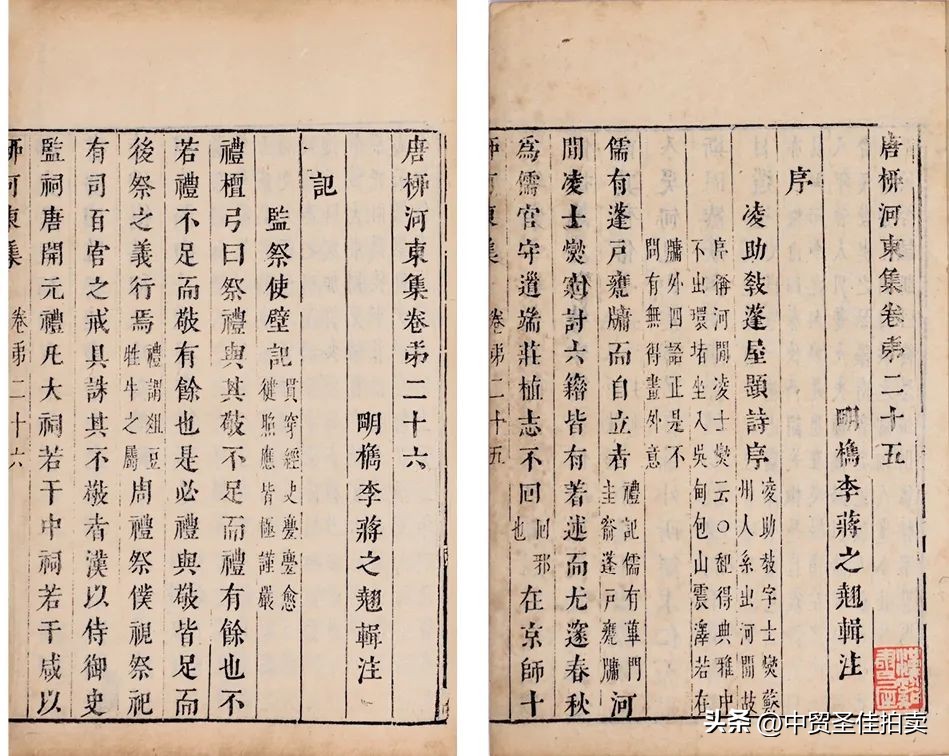 唐栁河東集卷苐二十五
明檇李蔣之翹輯注
序
凌助敎蓬屋題詩序凌助敎字士爕蘇州人系出河間故
序稱河間凌士爕云○觀得典雅中
不出環堵坐入吳甸包山震澤若在
牖外四語正是不
問有無得畫外意
儒有蓬戸甕牖而自立者禮記儒有蓽門圭窬蓬戸甕牖河
間凌士爕窮討六籍皆有著述而尤邃春秋
為儒官守道端莊植志不囘囘邪也在京師十
栁河東集 卷苐二十五
唐栁河東集卷苐二十六
明檇李蔣之翹輯注
記
監祭使壁記貫穿經史亹亹愈
徤照應皆極謹嚴
禮檀弓曰祭禮與其敬不足而禮有餘也不
若禮不足而敬有餘也是必禮與敬皆足而
後祭之義行焉禮謂俎豆牲牛之屬周禮祭僕視祭祀
有司百官之戒具誅其不敬者漢以侍御史
監祠唐開元禮凡大祠若干中祠若干咸以
栁河東集 卷苐二十六
头条 @中贸圣佳拍卖